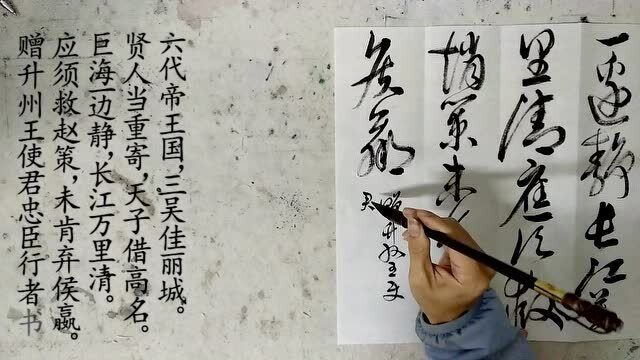 六代帝王国，三吴佳丽城。
贤人当重寄，天子借高名。
巨海一边静，长江万里清。
应须救赵策，未肯弃侯嬴。
赠升州王使君忠臣行者书
一邊靜長江萬
里清應須救
趙策未
侯嬴
贈升州王使
君